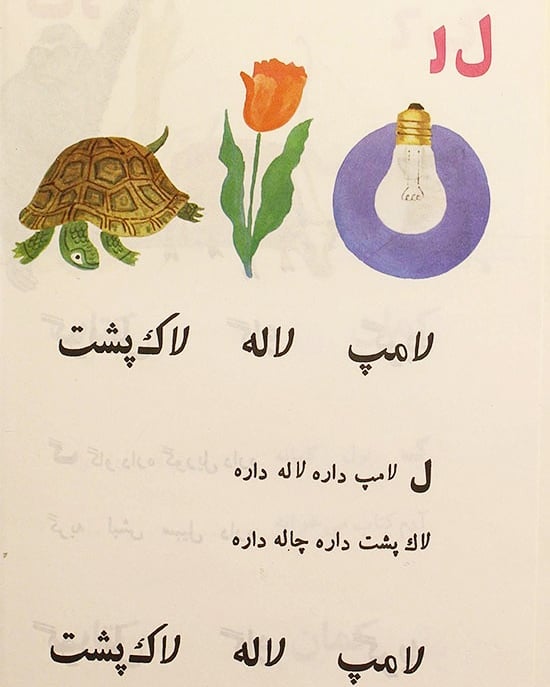 لـ ل
لامپ لاله لاک پشت
ل لامپ داره لاله داره
لاک پشت داره چاله داره
لامپ لاله لاک پشت